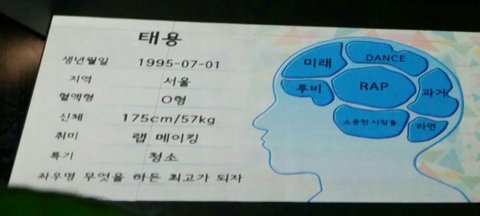 태용
생년월일 1995-07-01
지역 서울
혈액형 O형
신체 175cm/57kg
취미 랩 메이킹
특기 청소
좌우명 무엇을 하든 최고가 되자
미래
DANCE
루비
RAP
과거
소중한 사람들
라면